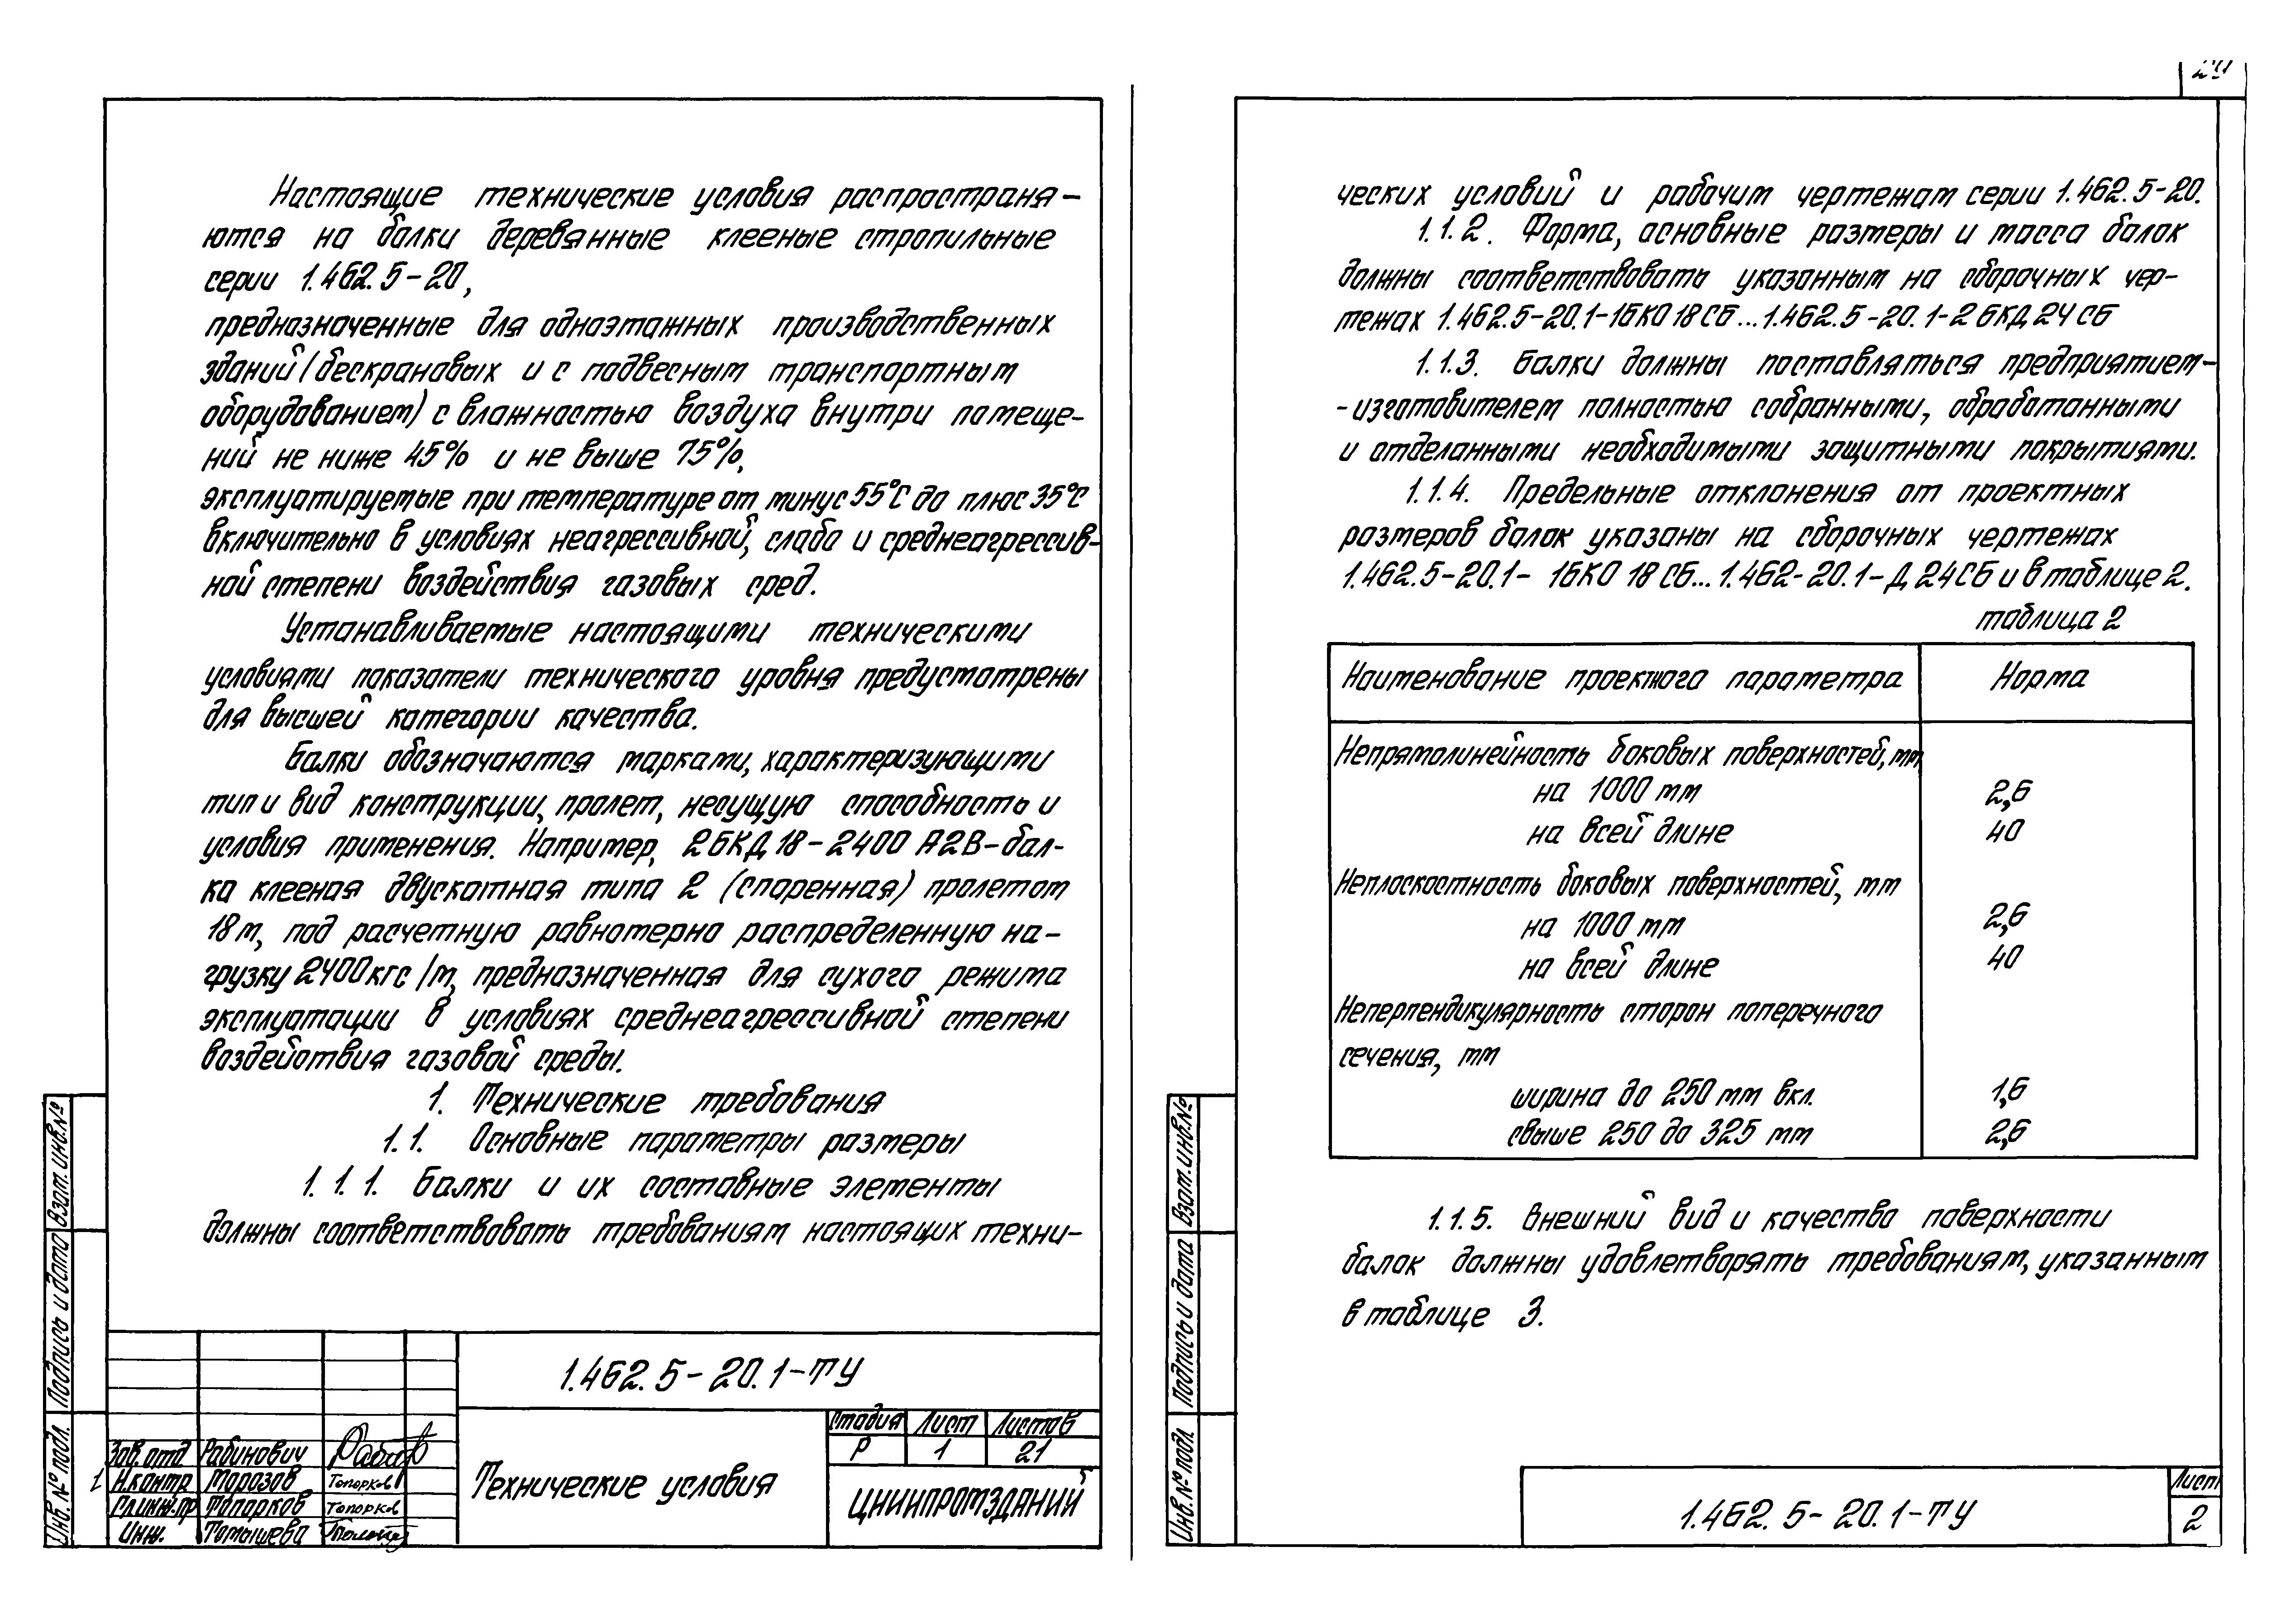 Настоящие технические условия распространя-
ются на балки деревянные клееные стропильные
серии 1.462.5-20,
предназначенные для одноэтажных производственных
зданий (бескрановых и с подвесным транспортным
оборудованием) с влажностью воздуха внутри помеще-
ний не ниже 45% и не выше 75%,
эксплуатируемые при температуре от минус 55°С до плюс 35°С
включительно в условиях неагрессивной, слабо и среднеагрессив-
ной степени воздействия газовых сред.
Устанавливаемые настоящими техническими
условиями показатели технического уровня предусмотрены
для высшей категории качества.
Балки обозначаются марками, характеризующими
тип и вид конструкции, пролет, несущую способность и
условия применения. Например, 2БКД 18-2400 А2В-бал-
ка клееная двускатная типа 2 (спаренная) пролетом
18 м, под расчетную равномерно распределенную на-
грузку 2400 кгс/м, предназначенная для сухого режима
эксплуатации в условиях среднеагрессивной степени
воздействия газовой среды.
1. Технические требования
1.1. Основные параметры размеры
1.1.1. Балки и их составные элементы
должны соответствовать требованиям настоящих техни-
Взам. инв. №
Подпись и дата
Инв. № подл.
1.462.5-20.1-ТУ
Зав. отд Рабинович
Н.контр Морозов Топорков
Гл.инж.пр Топорков Топорков
Инж. Томышева
Технические условия
Стадия Лист Листов
Р 1 21
ЦНИИПРОМЗДАНИЙ
ческих условий и рабочим чертежам серии 1.462.5-20.
1.1.2. Форма, основные размеры и масса балок
должны соответствовать указанным на сборочных чер-
тежах 1.462.5-20.1-1БКО 18 СБ...1.462.5-20.1-2 БКД 24 СБ
1.1.3. Балки должны поставляться предприятием-
-изготовителем полностью собранными, обработанными
и отделанными необходимыми защитными покрытиями.
1.1.4. Предельные отклонения от проектных
размеров балок указаны на сборочных чертежах
1.462.5-20.1- 1БКО 18 СБ...1.462-20.1-Д 24СБ и в таблице 2.
таблица 2
Наименование проектного параметра Норма
Непрямолинейность боковых поверхностей, мм
на 1000 мм 2,6
на всей длине 40
Неплоскостность боковых поверхностей, мм
на 1000 мм 2,6
на всей длине 40
Неперпендикулярность сторон поперечного
сечения, мм
ширина до 250 мм вкл. 1,6
свыше 250 до 325 мм 2,6
1.1.5. Внешний вид и качество поверхности
балок должны удовлетворять требованиям, указанным
в таблице 3.
Взам. инв. №
Подпись и дата
Инв. № подл
1.462.5-20.1-ТУ
Лист
2